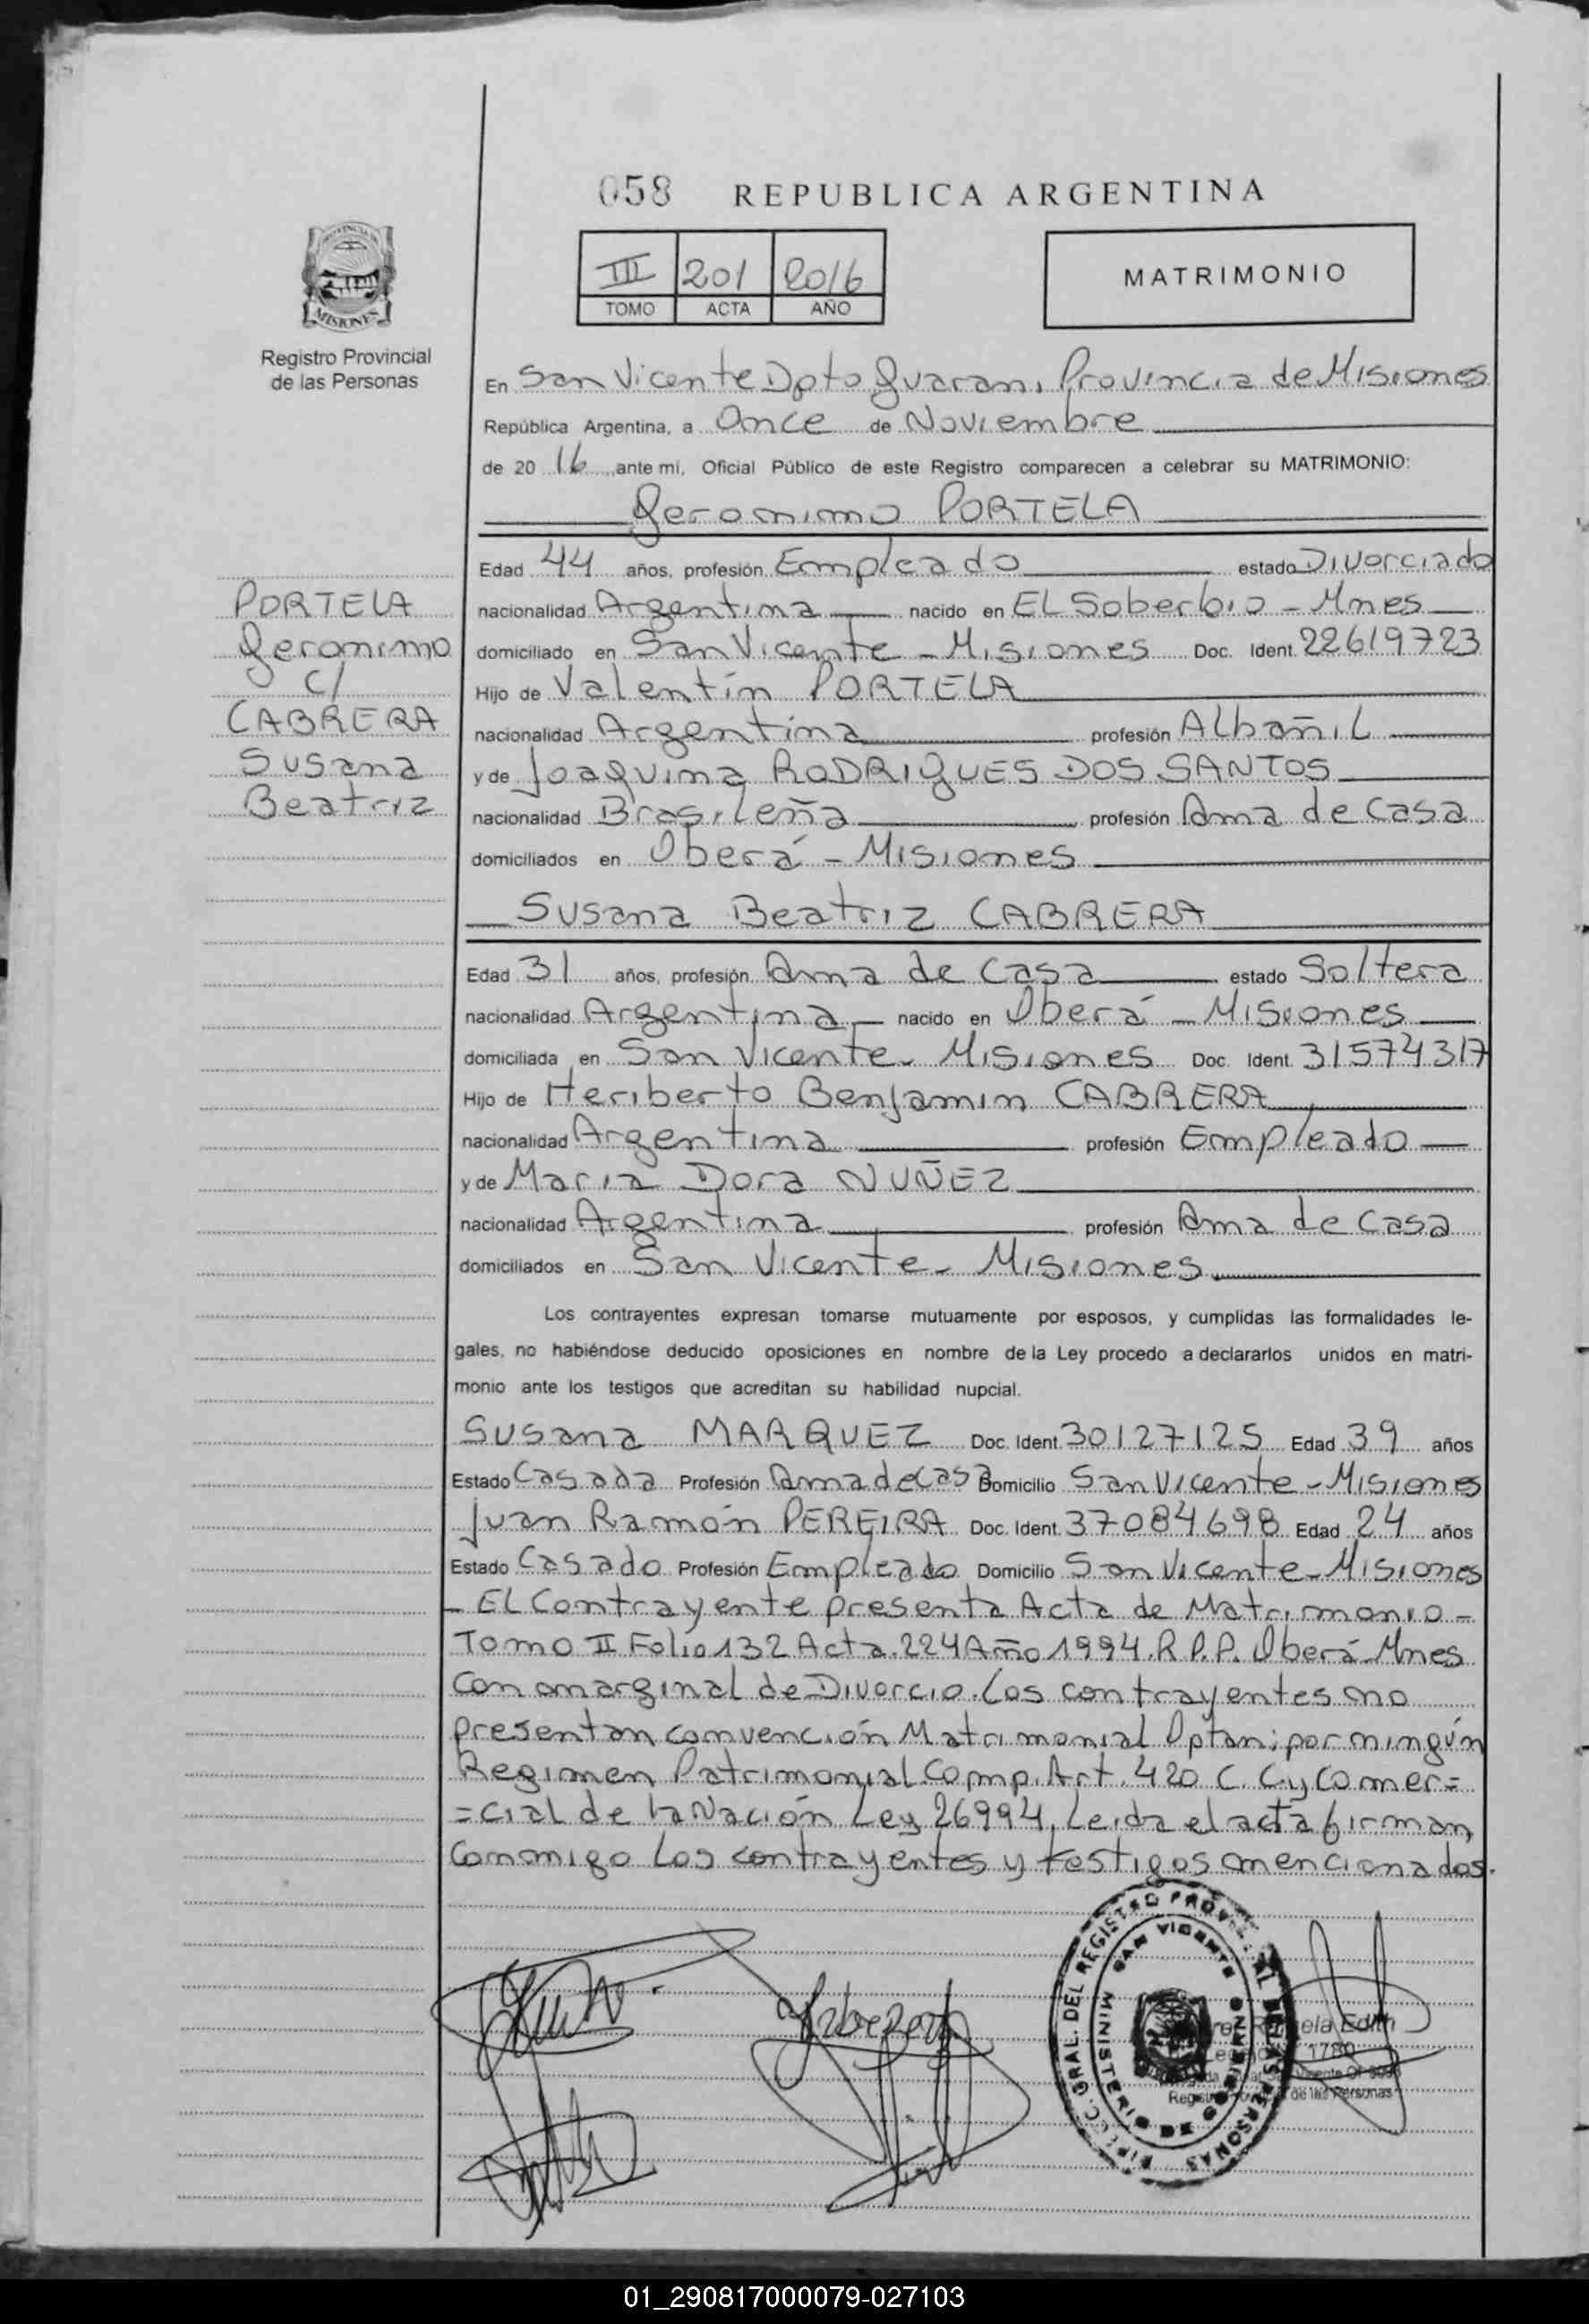 058 REPUBLICA ARGENTINA
III 201 2016
TOMO ACTA AÑO
MATRIMONIO
PROVINCIA DE
MISIONES
Registro Provincial
de las Personas
En San Vicente Dpto Guarani, Provincia de Misiones
República Argentina, a Once de Noviembre
de 20 16 ante mi, Oficial Público de este Registro comparecen a celebrar su MATRIMONIO:
Geronimo PORTELA
Edad 44 años, profesión Empleado estado Divorciado
nacionalidad Argentina nacido en EL Soberbio - Mnes
domiciliado en San Vicente - Misiones Doc. Ident. 22619723
Hijo de Valentín PORTELA
nacionalidad Argentina profesión Albañil
y de Joaquina RODRIGUES DOS SANTOS
nacionalidad Brasileña profesión Ama de Casa
domiciliados en Oberá - Misiones
PORTELA
Geronimo
C/
CABRERA
Susana
Beatriz
Susana Beatriz CABRERA
Edad 31 años, profesión Ama de Casa estado Soltera
nacionalidad Argentina nacido en Oberá - Misiones
domiciliada en San Vicente - Misiones Doc. Ident. 31574317
Hijo de Heriberto Benjamin CABRERA
nacionalidad Argentina profesión Empleado
y de Maria Dora NUÑEZ
nacionalidad Argentina profesión Ama de Casa
domiciliados en San Vicente - Misiones
Los contrayentes expresan tomarse mutuamente por esposos, y cumplidas las formalidades le-
gales, no habiéndose deducido oposiciones en nombre de la Ley procedo a declararlos unidos en matri-
monio ante los testigos que acreditan su habilidad nupcial.
Susana MARQUEZ Doc. Ident. 30127125 Edad 39 años
Estado Casada Profesión Ama de Casa Domicilio San Vicente - Misiones
Juan Ramón PEREIRA Doc. Ident. 37084698 Edad 24 años
Estado Casado Profesión Empleado Domicilio San Vicente - Misiones
- El Contrayente presenta Acta de Matrimonio -
Tomo II Folio 132 Acta. 224 Año 1994. R.P.P. Oberá - Mnes
Con marginal de Divorcio. Los contrayentes no
presentan convención Matrimonial Optan; por ningún
Regimen Patrimonial Comp. Art. 420 C. C. y Comer=
=cial de la Nación Ley 26994, Leida el acta firman
Conmigo Los contrayentes y testigos mencionados.
DIRECC. GRAL. DEL REGISTRO PROV. DE LAS PERSONAS
SAN VICENTE
MINISTERIO DE GOBIERNO
Edith
1780
de las Personas
01_290817000079-027103